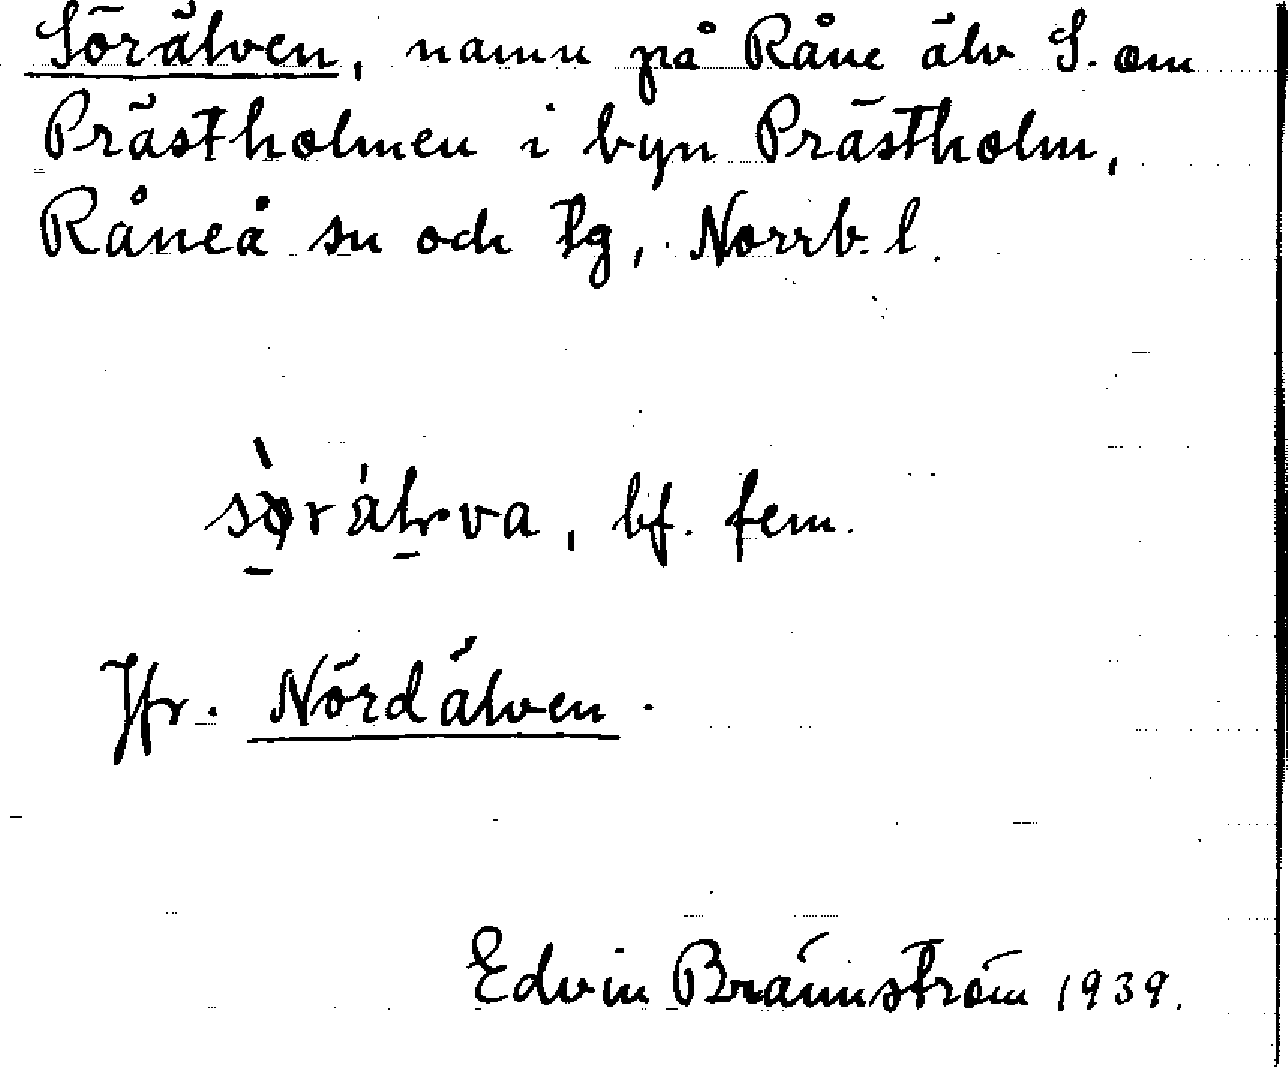 Sörälven, namn på Råne älv S. om
Prästholmen i byn Prästholm,
Råneå sn och tg, Norrb. l.
bf. fem.
Jfr. Nördälven.
Edvin Brännström 1939.